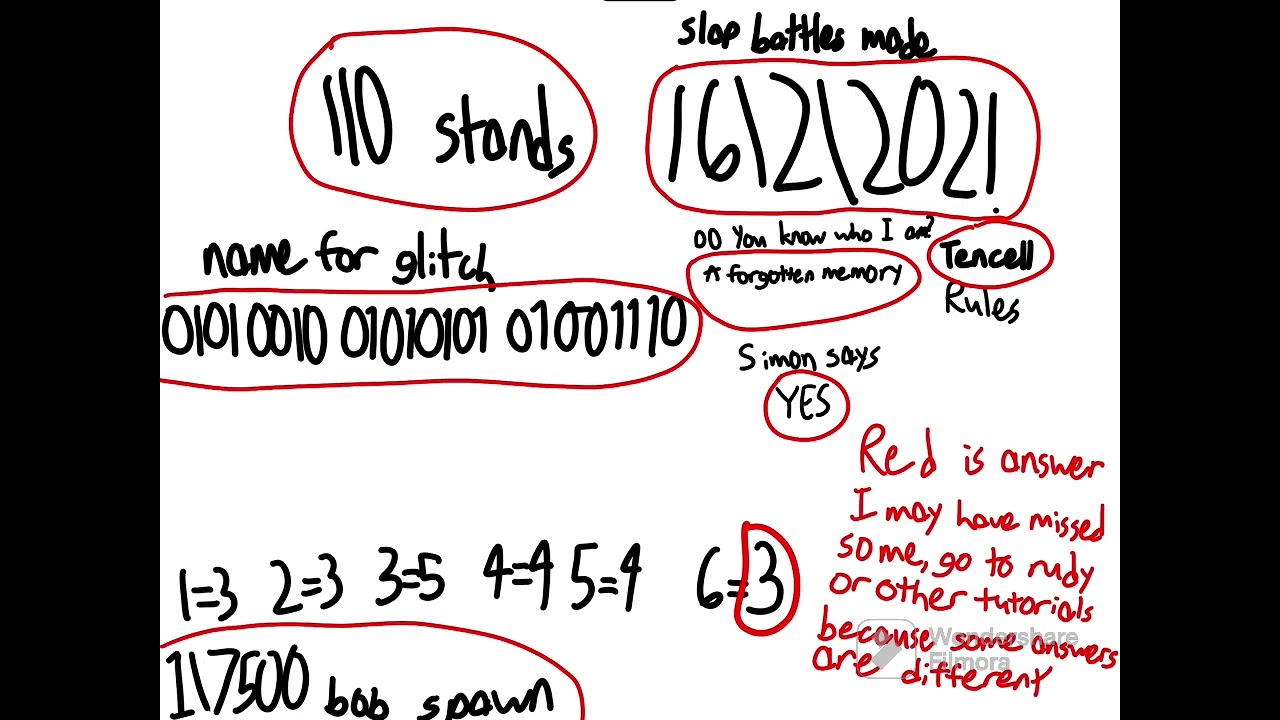 slap battles made
110 stands
16\2\2021!
DO You know who I am?
A forgotten memory
Tencell
Rules
name for glitch
01010010 01010101 01001110
Simon says
YES
Red is answer
I may have missed
some, go to rudy
or other tutorials
because some answers
are different
1=3 2=3 3=5 4=4 5=4 6=3
1\7500 bob spawn
Wondershare
Filmora